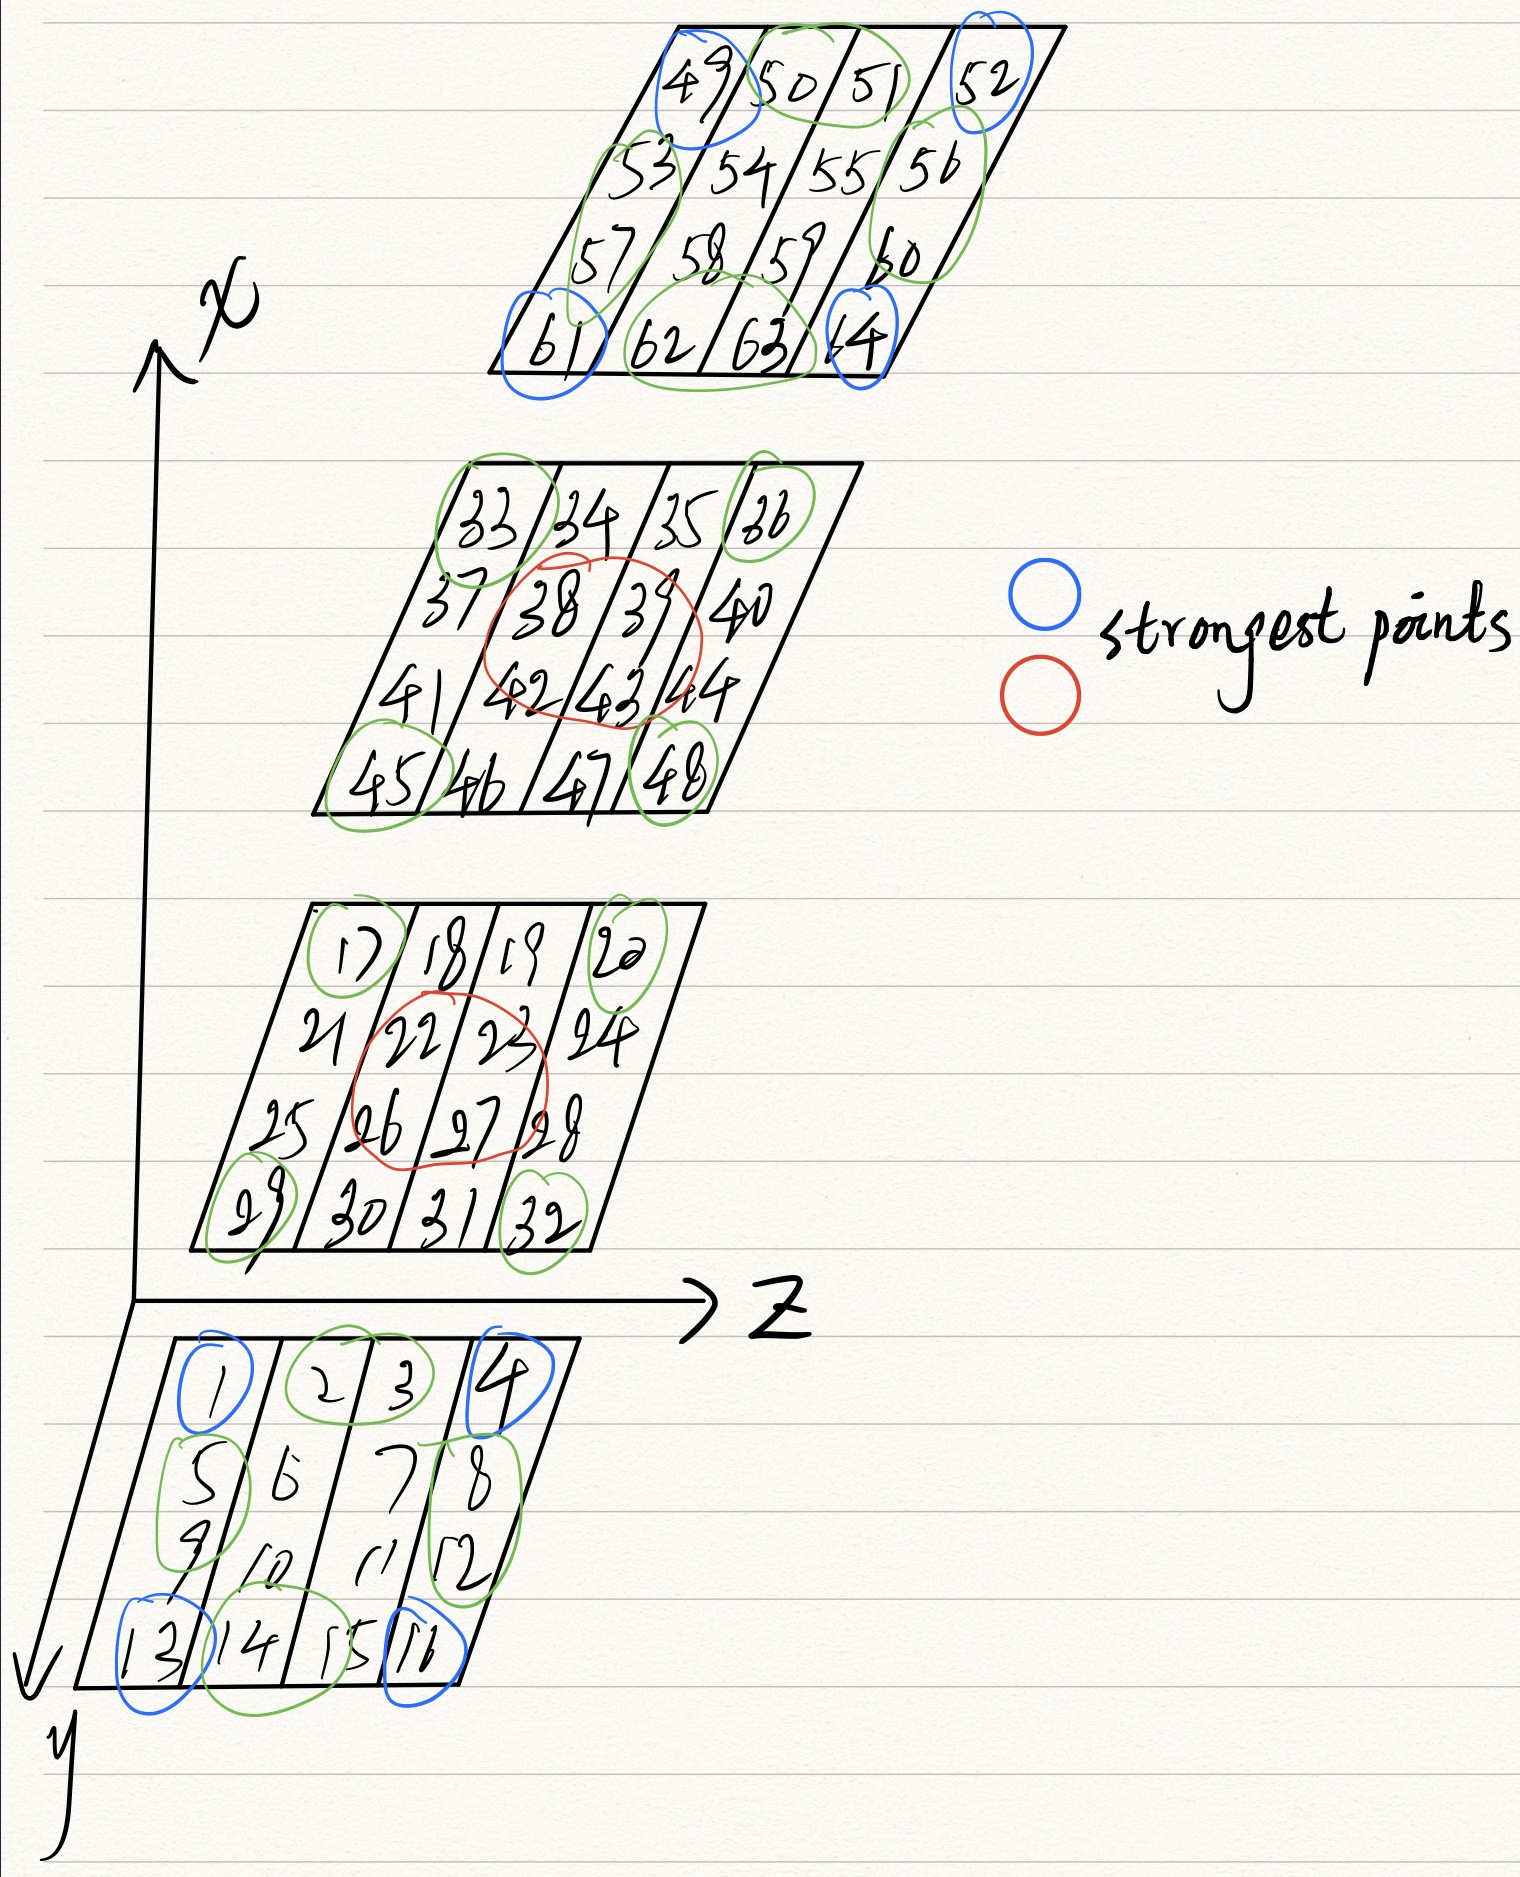 49 50 51 52
53 54 55 56
57 58 59 60
61 62 63 64
x
33 34 35 36
37 38 39 40
41 42 43 44
45 46 47 48
strongest points
17 18 19 20
21 22 23 24
25 26 27 28
29 30 31 32
z
1 2 3 4
5 6 7 8
9 10 11 12
13 14 15 16
y